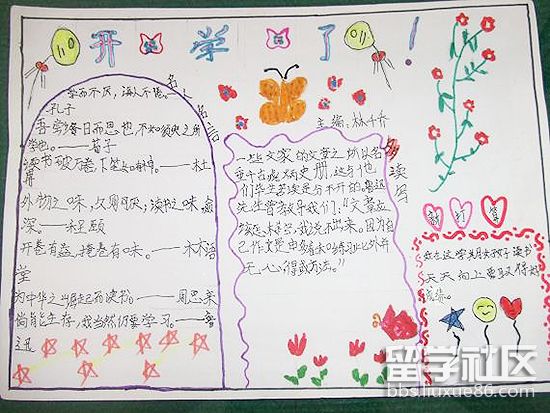 开学了！
名人名言
学而不厌，诲人不倦。——
孔子
吾尝终日而思也，不如须臾之所
学也。——荀子
读书破万卷，下笔如有神。——杜
甫
外物之味，久则厌；读书之味，愈
深。——程颐
开卷有益，掩卷有味。——林语
堂
为中华之崛起而读书。——周恩来
倘能生存，我当然仍要学习。——鲁
迅
主编：林
读写
一些文家的文章之所以名
垂千古成为历史册，这与他
们毕生苦读是分不开的。鲁迅
先生曾教导我们，“文章应
该怎样写，我说不出来。因为自
己作文是由多看和练习，此外并
无心得或方法。”
新打算
我在这学期好好读书
天天向上，要取得好
成绩。
留学社区
bbs.liuxue86.com